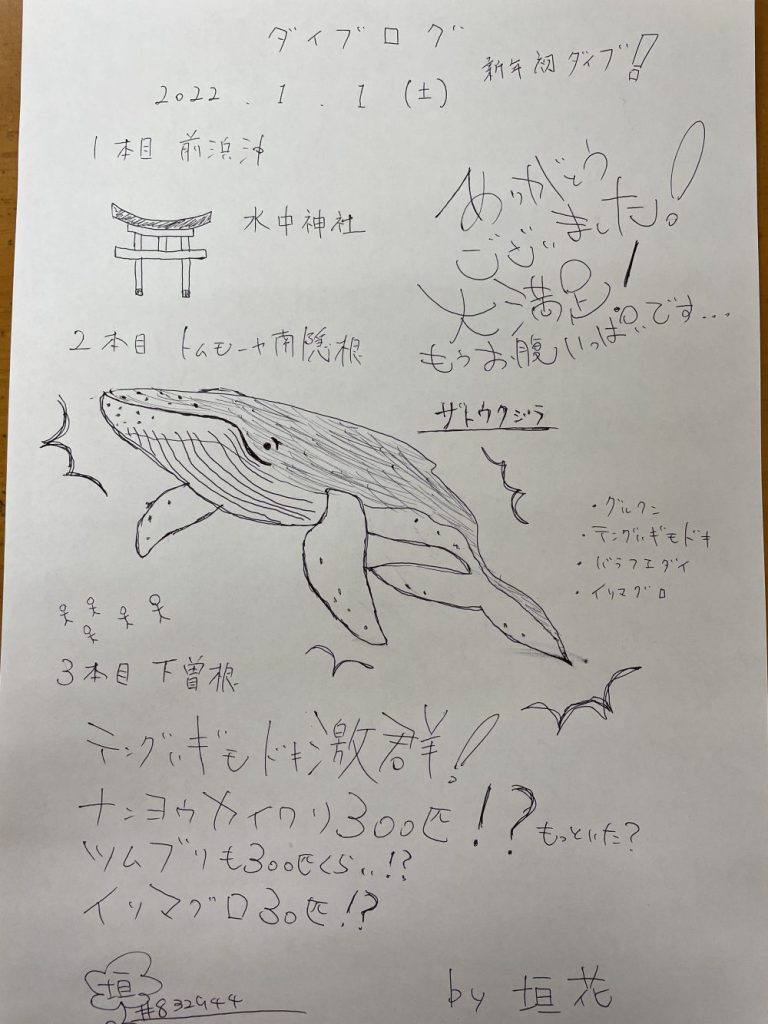 ダイブログ
新年初ダイブ!
2022.1.1(土)
1本目 前浜沖
水中神社
ありがとう
ございました!
大満足!
もうお腹いっぱいです…
2本目 トムモーヤ南隠根
ザトウクジラ
・グルクン
・テングハギモドキ
・バラフエダイ
・イソマグロ
3本目 下曽根
テングハギモドキ激群!
ナンヨウカイワリ300匹!?もっといた?
ツムブリも300匹くらい!?
イソマグロ30匹!?
垣
#832944
by 垣花